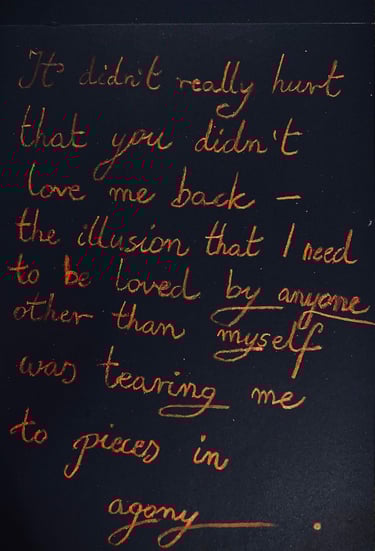 It didn't really hurt
that you didn't
love me back –
the illusion that I need
to be loved by anyone
other than myself
was tearing me
to pieces in
agony.